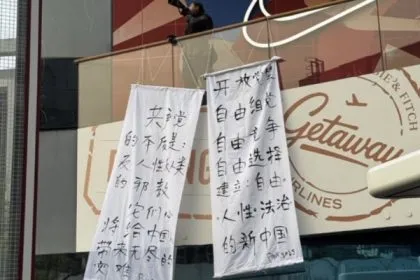 共產党
的本质是：
反人性人类
的邪教
它们
将给中国
带来无尽的
灾难
开放党禁
自由组党
自由竞争
自由选择
建立：自由·
人性·法治
的新中国
E & FITCH
Getaway
AIRLINES